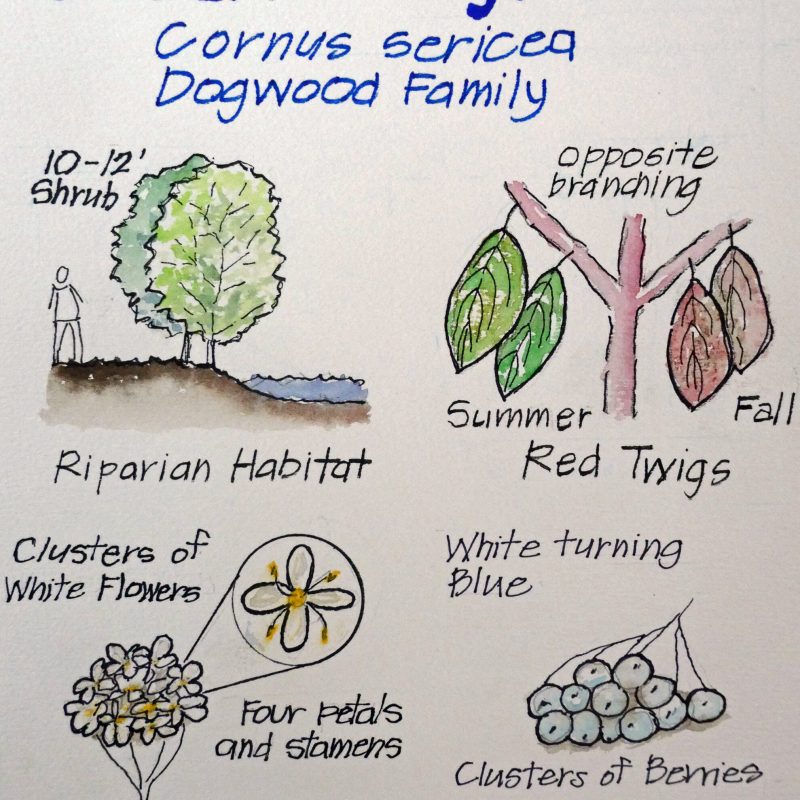 Cornus sericea
Dogwood Family
10-12'
Shrub
opposite
branching
Summer
Fall
Riparian Habitat
Red Twigs
Clusters of
White Flowers
Four petals
and stamens
White turning
Blue
Clusters of Berries